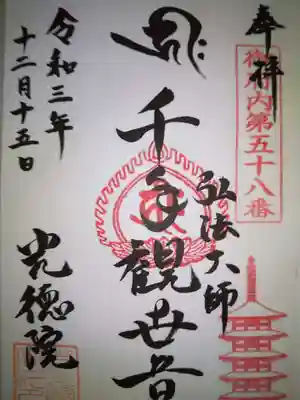 奉拝
御府内第五十八番
弘法大師
千手観世音
令和三年
十二月十五日
光德院